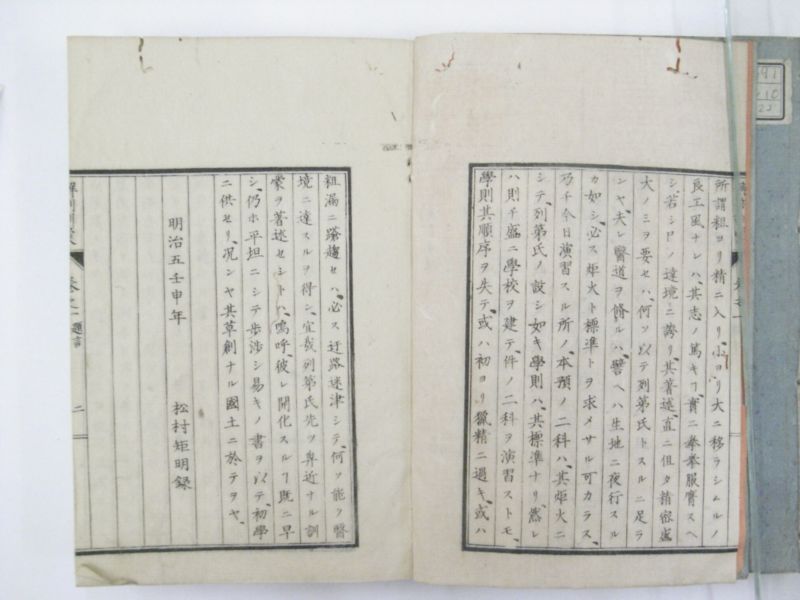 所謂粗ヨリ精ニ入リ、小ヨリ大ニ移ラシムルノ
良工風ナレハ、其志ノ篤キヿ、實ニ拳拳服膺スヘ
シ、若シ尸ノ達境ニ誇リ、其著述、直ニ但タ精密盛
大ノミヲ要セハ、何ソ以テ列第氏トスルニ足ラ
ンヤ、夫レ醫道ヲ脩ルハ、譬ヘハ生地ニ夜行スル
カ如シ、必ス炬火ト標準トヲ求メサル可カラス、
乃チ今日演習スル所ノ、本預ノ二科ハ、其炬火ニ
シテ、列第氏ノ設シ如キ學則ハ、其標準ナリ、然レ
ハ則チ盛ニ學校ヲ建テ、件ノ二科ヲ演習ストモ、
學則其順序ヲ失テ、或ハ初ヨリ獵精ニ過キ、或ハ
粗漏ニ趨セハ、必ス迂路迷津シテ、何ソ能ク醫
境ニ達スルヲ得ン、宜哉列第氏先ツ卑近ナル訓
蒙ヲ著述セシトハ、嗚呼、彼レ開化スルヿ既ニ早
シ、仍ホ平坦ニシテ歩渉シ易キノ書ヲ以テ、初學
ニ供セリ、况ンヤ其草創ナル國土ニ於テヲヤ、
明治五壬申年
松村矩明錄
卷之一 題言 二